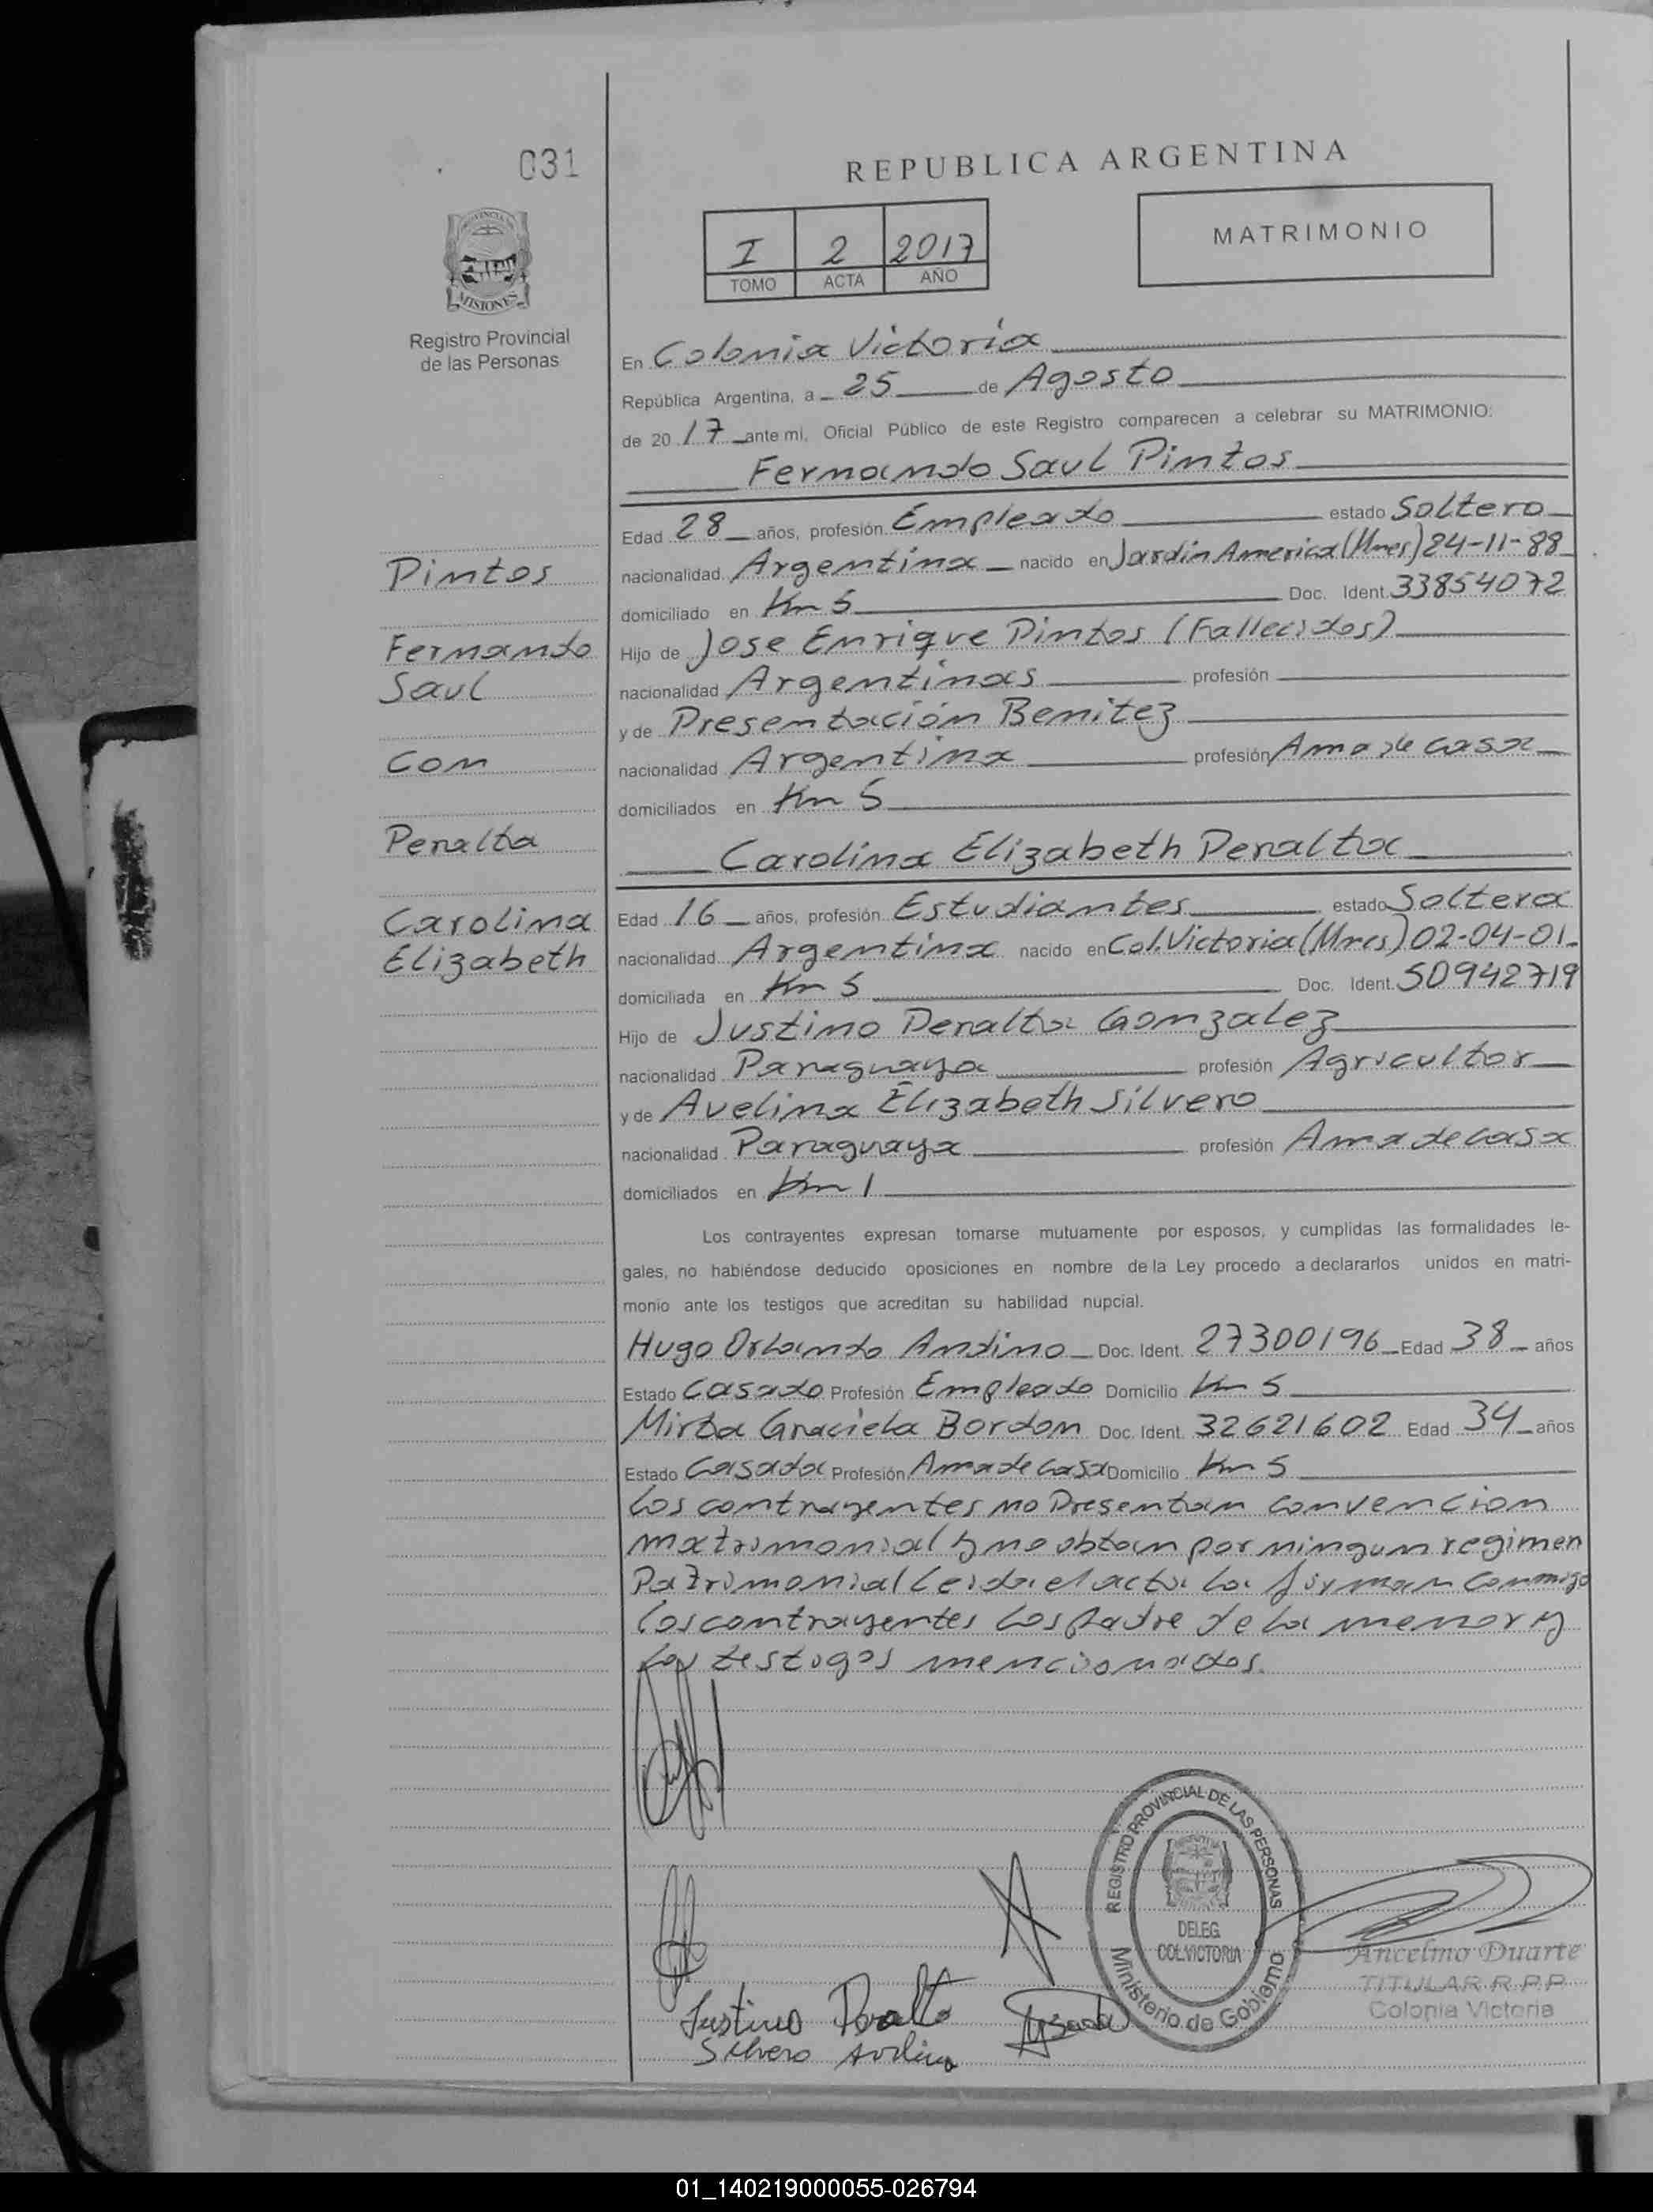 031
REPUBLICA ARGENTINA
PROVINCIA
MISIONES
Registro Provincial
de las Personas
I 2 2017
TOMO ACTA AÑO
MATRIMONIO
En Colonia Victoria
República Argentina, a 25 de Agosto
de 20 17 ante mi, Oficial Público de este Registro comparecen a celebrar su MATRIMONIO:
Fernando Saul Pintos
Edad 28 años, profesión Empleado estado Soltero
Pintos
nacionalidad Argentina nacido en Jardin America (Mnes) 24-11-88
domiciliado en Km 5 Doc. Ident. 33854072
Fernando
Hijo de Jose Enrique Pintos (Fallecidos)
Saul
nacionalidad Argentinas profesión
y de Presentación Benitez
Con
nacionalidad Argentina profesión Ama de casa
domiciliados en Km 5
Peralta
Carolina Elizabeth Peralta
Carolina
Edad 16 años, profesión Estudiantes estado Soltera
Elizabeth
nacionalidad Argentina nacido en Col. Victoria (Mnes) 02-04-01
domiciliada en Km 5 Doc. Ident. 50942719
Hijo de Justino Peralta Gonzalez
nacionalidad Paraguaya profesión Agricultor
y de Avelina Elizabeth Silvero
nacionalidad Paraguaya profesión Ama de casa
domiciliados en Km 1
Los contrayentes expresan tomarse mutuamente por esposos, y cumplidas las formalidades le-
gales, no habiéndose deducido oposiciones en nombre de la Ley procedo a declararlos unidos en matri-
monio ante los testigos que acreditan su habilidad nupcial.
Hugo Orlando Andino Doc. Ident. 27300196 Edad 38 años
Estado Casado Profesión Empleado Domicilio Km 5
Mirta Graciela Bordon Doc. Ident. 32621602 Edad 34 años
Estado Casada Profesión Ama de casa Domicilio Km 5
Los contrayentes no Presentan convencion
matrimonial y no obtan por ningun regimen
Patrimonial Leida el acta La firman Conmigo
los contrayentes los Padre de la menor y
Los testigos mencionados.
REGISTRO PROVINCIAL DE LAS PERSONAS
DELEG.
COL. VICTORIA
Ministerio de Gobierno
Ancelmo Duarte
TITULAR R.P.P.
Colonia Victoria
Justino Peralta
Silvero Avelina
01_140219000055-026794